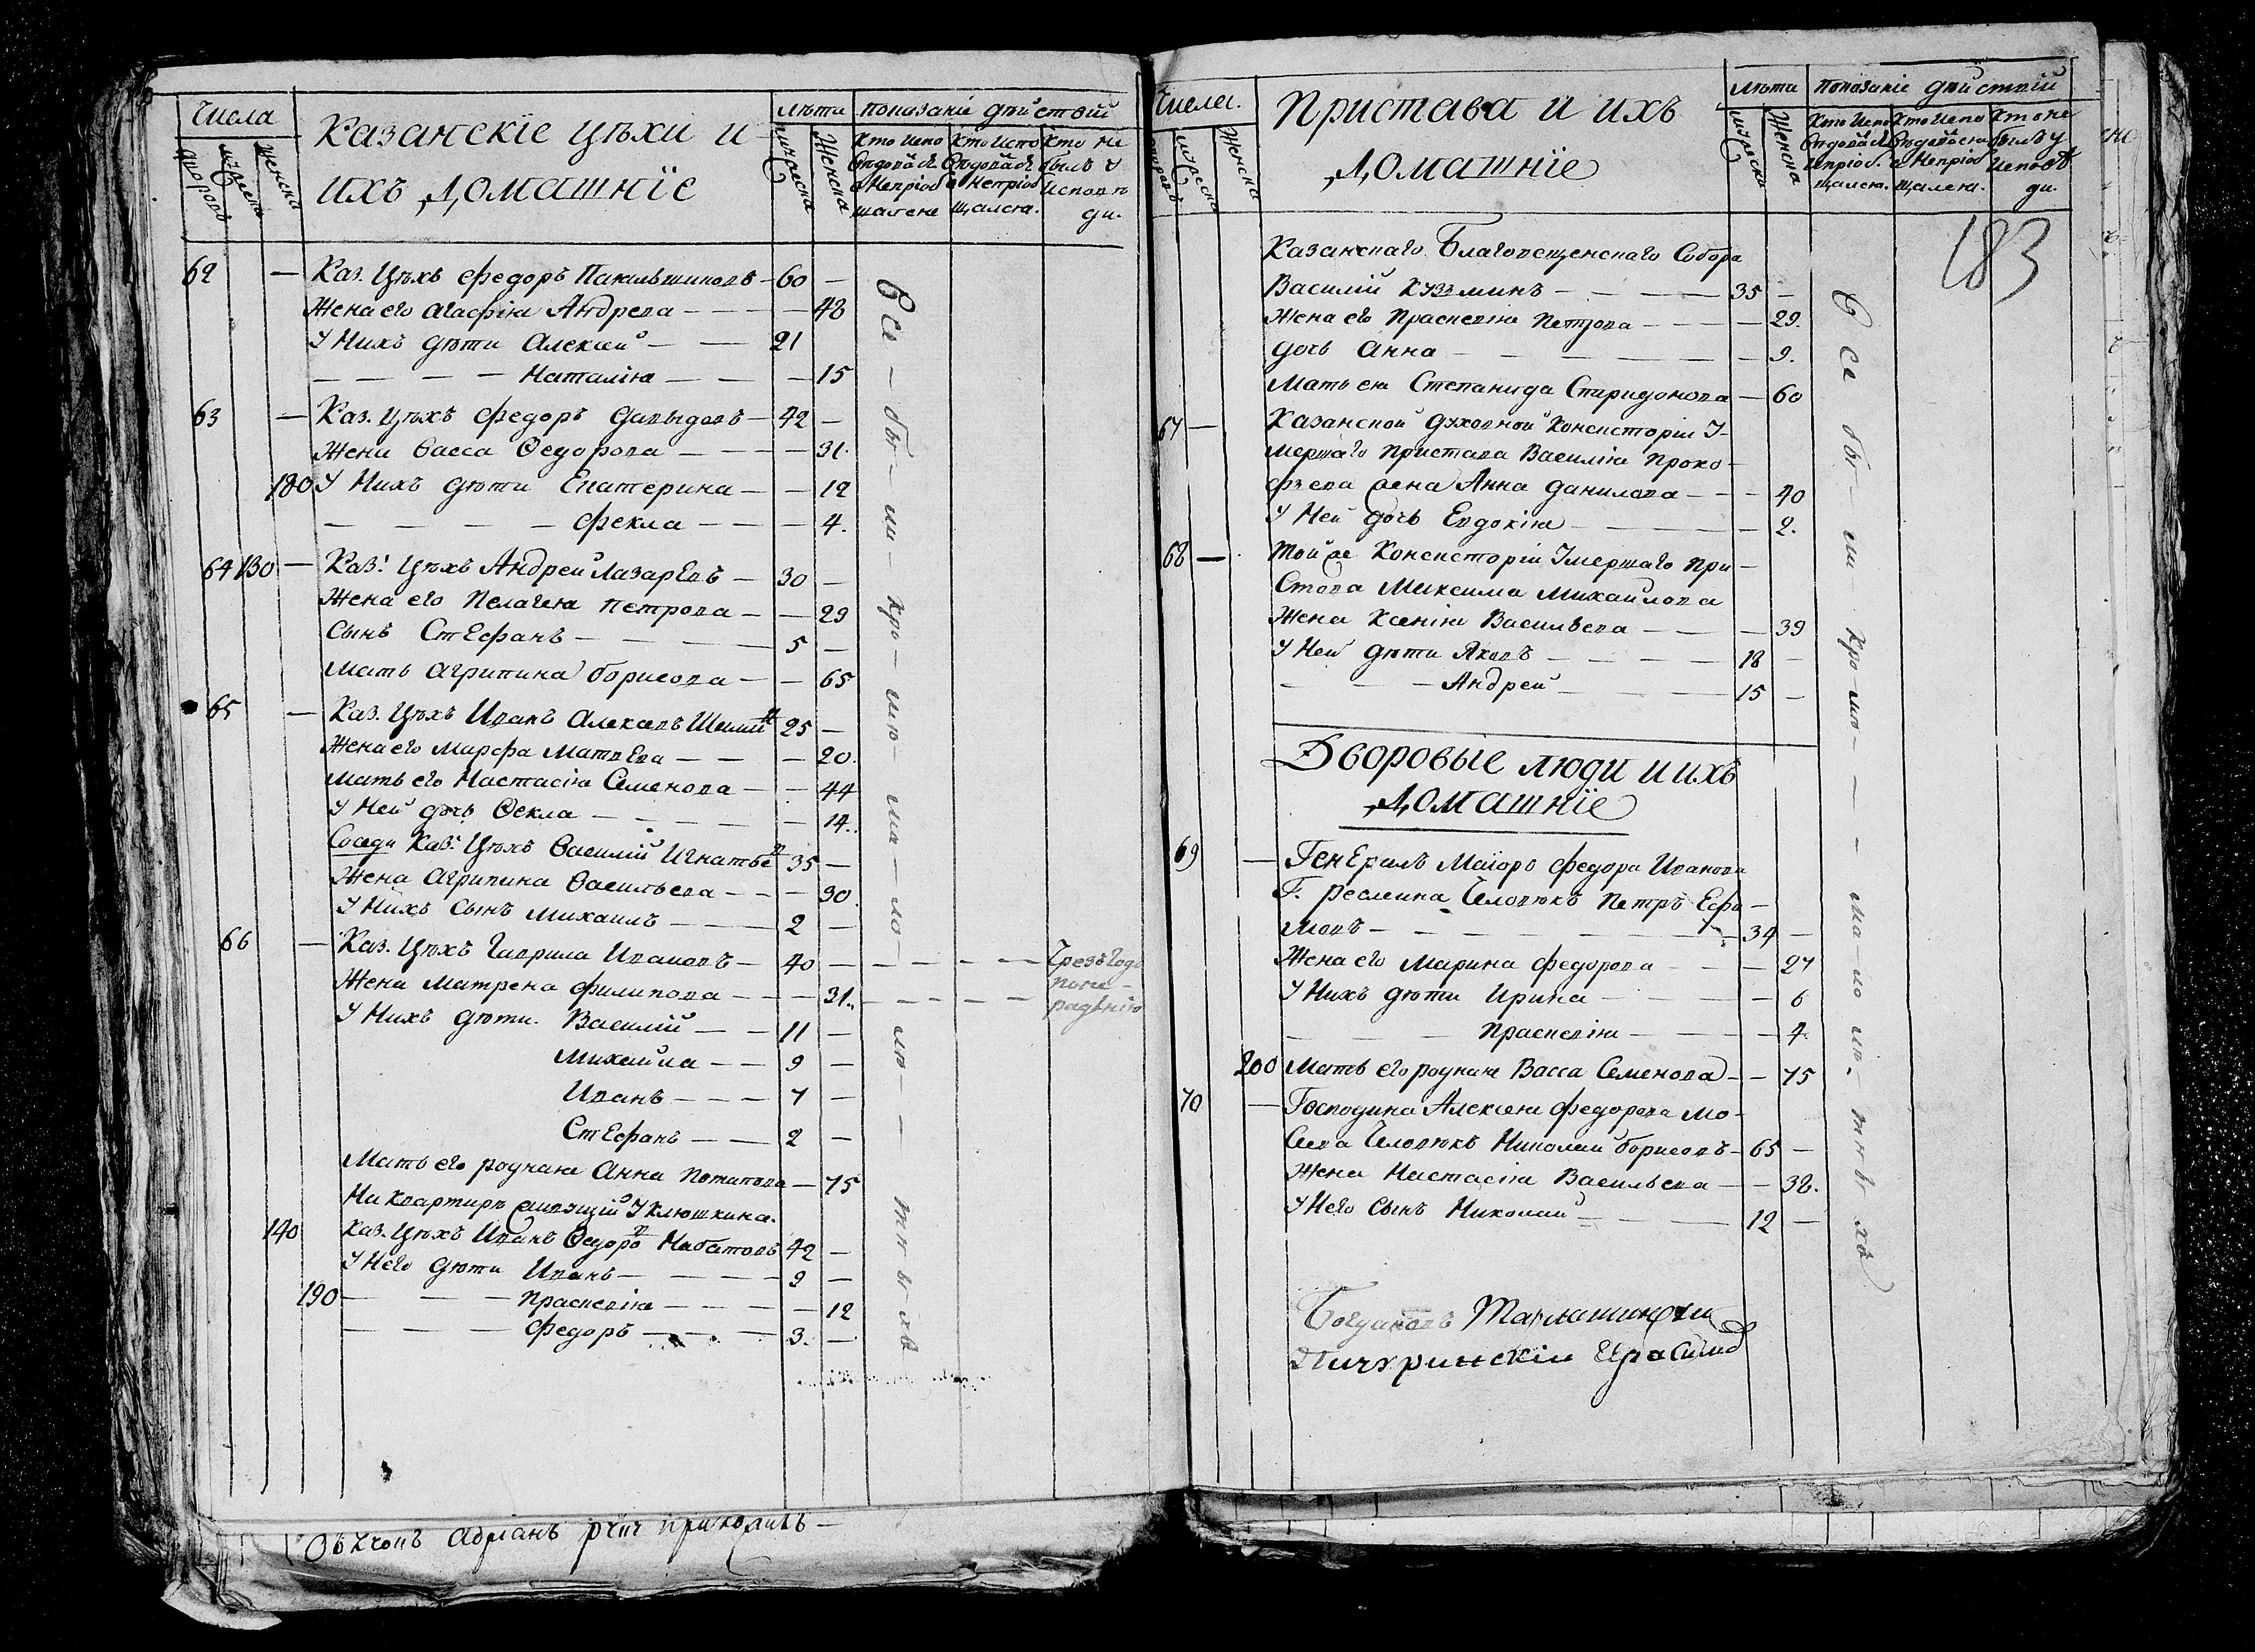 Числа
Казанскіе цѣхи и
ихъ домашніе
лѣта
показаніе дѣйствій
дворовъ
мужеска
женска
мужеска
Женска
Кто испо
вѣдовался
и пріоб
щался
Кто испо
вѣдовался
а непріоб
щался.
Кто не
былъ у
исповѣ
ди.
62 — Каз. Цѣхъ Федоръ — 60 —
Жена его Агафія Андрева — — — 48
У Нихъ дѣти Алексей — — 21
— — — — Наталія — — — 15
63 — Каз. Цѣхъ Федоръ Давыдовъ — 42 —
Жена Васса Ѳедорова — — — 31.
180 У Нихъ дѣти Екатерина — — 12
— — — — Фекла — — — 4.
64 130 — Каз. Цѣхъ Андрей Лазаревъ — 30 —
Жена его Пелагея Петрова — — 29
Сынъ Стефанъ — — — 5 —
Мать Агрипина борисова — — 65
65 — Каз. Цѣхъ Иванъ Алексевъ 25 —
Жена его Марфа Матвева — — — 20.
Мать его Настасія Семенова — — 44
У Ней дочь Ѳекла — — — — 14.
Соседи Каз. Цѣхъ Василій Игнатьев 35 —
Жена Агрипина Васильева — — — 30
У Нихъ Сынъ Михаилъ — — — 2 —
66 — Каз. Цѣхъ Гаврила Ивановъ — 40 — — — — — Чрезъ Годъ
Жена Матрена Филипова — — — 31. — — — — — по не-
радѣнію
У Нихъ дѣти. Василій — — 11 —
Михайла — — 9 —
Иванъ — — — 7 —
Стефанъ — — 2 —
Мать его родная Анна Потапова — 75
На квартирѣ живущій У Клюшкина.
140 Каз. Цѣхъ Иванъ Ѳедоров Набатовъ 42 —
У Него дѣти Иванъ — — — — 9 —
190 — — — Прасковія — — — — 12
— — — Федоръ — — — 3. —
Всѣ — бы — ли — кро — мѣ — ма — ло — лѣ — тныхъ
Овчон Адріанъ
Числа.
Пристава и ихъ
домашніе
Лѣта
показаніе дѣйствій
дворовъ
мужеска
Женска
мужеска
Женска
Кто испо
вѣдовался
и пріоб.
щался.
Кто испо
вѣдовался
а непріоб
щался.
Кто не
былъ у
исповѣ
ди.
183
Казанскаго Благовещенскаго Собора
Василій Кузминъ — — — — 35 —
Жена его Прасковія Петрова — — — — 29.
дочь Анна — — — — — — 9.
Мать ея Степанида Спиридонова — 60
67 — Казанской духовной Консисторіи У-
мершаго Пристава Василія Проко-
фьева жена Анна Данилова — — — 40
У Ней дочь Евдокія — — — — — 2.
68 — Той же Консисторіи Умершаго При-
става Максима Михайлова
Жена Ксенія Васильева — — — 39
У Ней дѣти Яковъ — — — — 18 —
— — — Андрей — — — 15 —
Дворовые люди и ихъ
домашніе
69 — Генералъ Маіора Федора Иванова
Г. человѣкъ Петръ Ефи-
мовъ — — — — — — — 34 —
Жена его Марина Федорова — — — 27
У Нихъ дѣти Ирина — — — — 6
— — — Прасковія — — — — 4.
200 Мать его родная Васса Семенова — — 75
70 — Господина Алексея Федорова Мо-
сева человѣкъ Николай борисовъ — 65 —
Жена Настасія Васильева — — 38.
У Него Сынъ Николай — — — 12 —
Всѣ бы — ли кро — мѣ — — — ма — ло лѣ — тныхъ
Богданов
Пичуринскіи